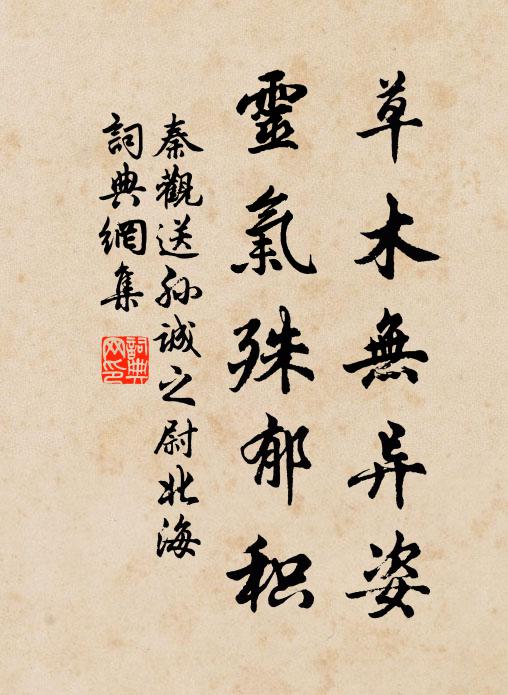 草木無异姿
靈氣殊郁积
秦觀送孙誠之尉北海
詞典網集
詞典网印